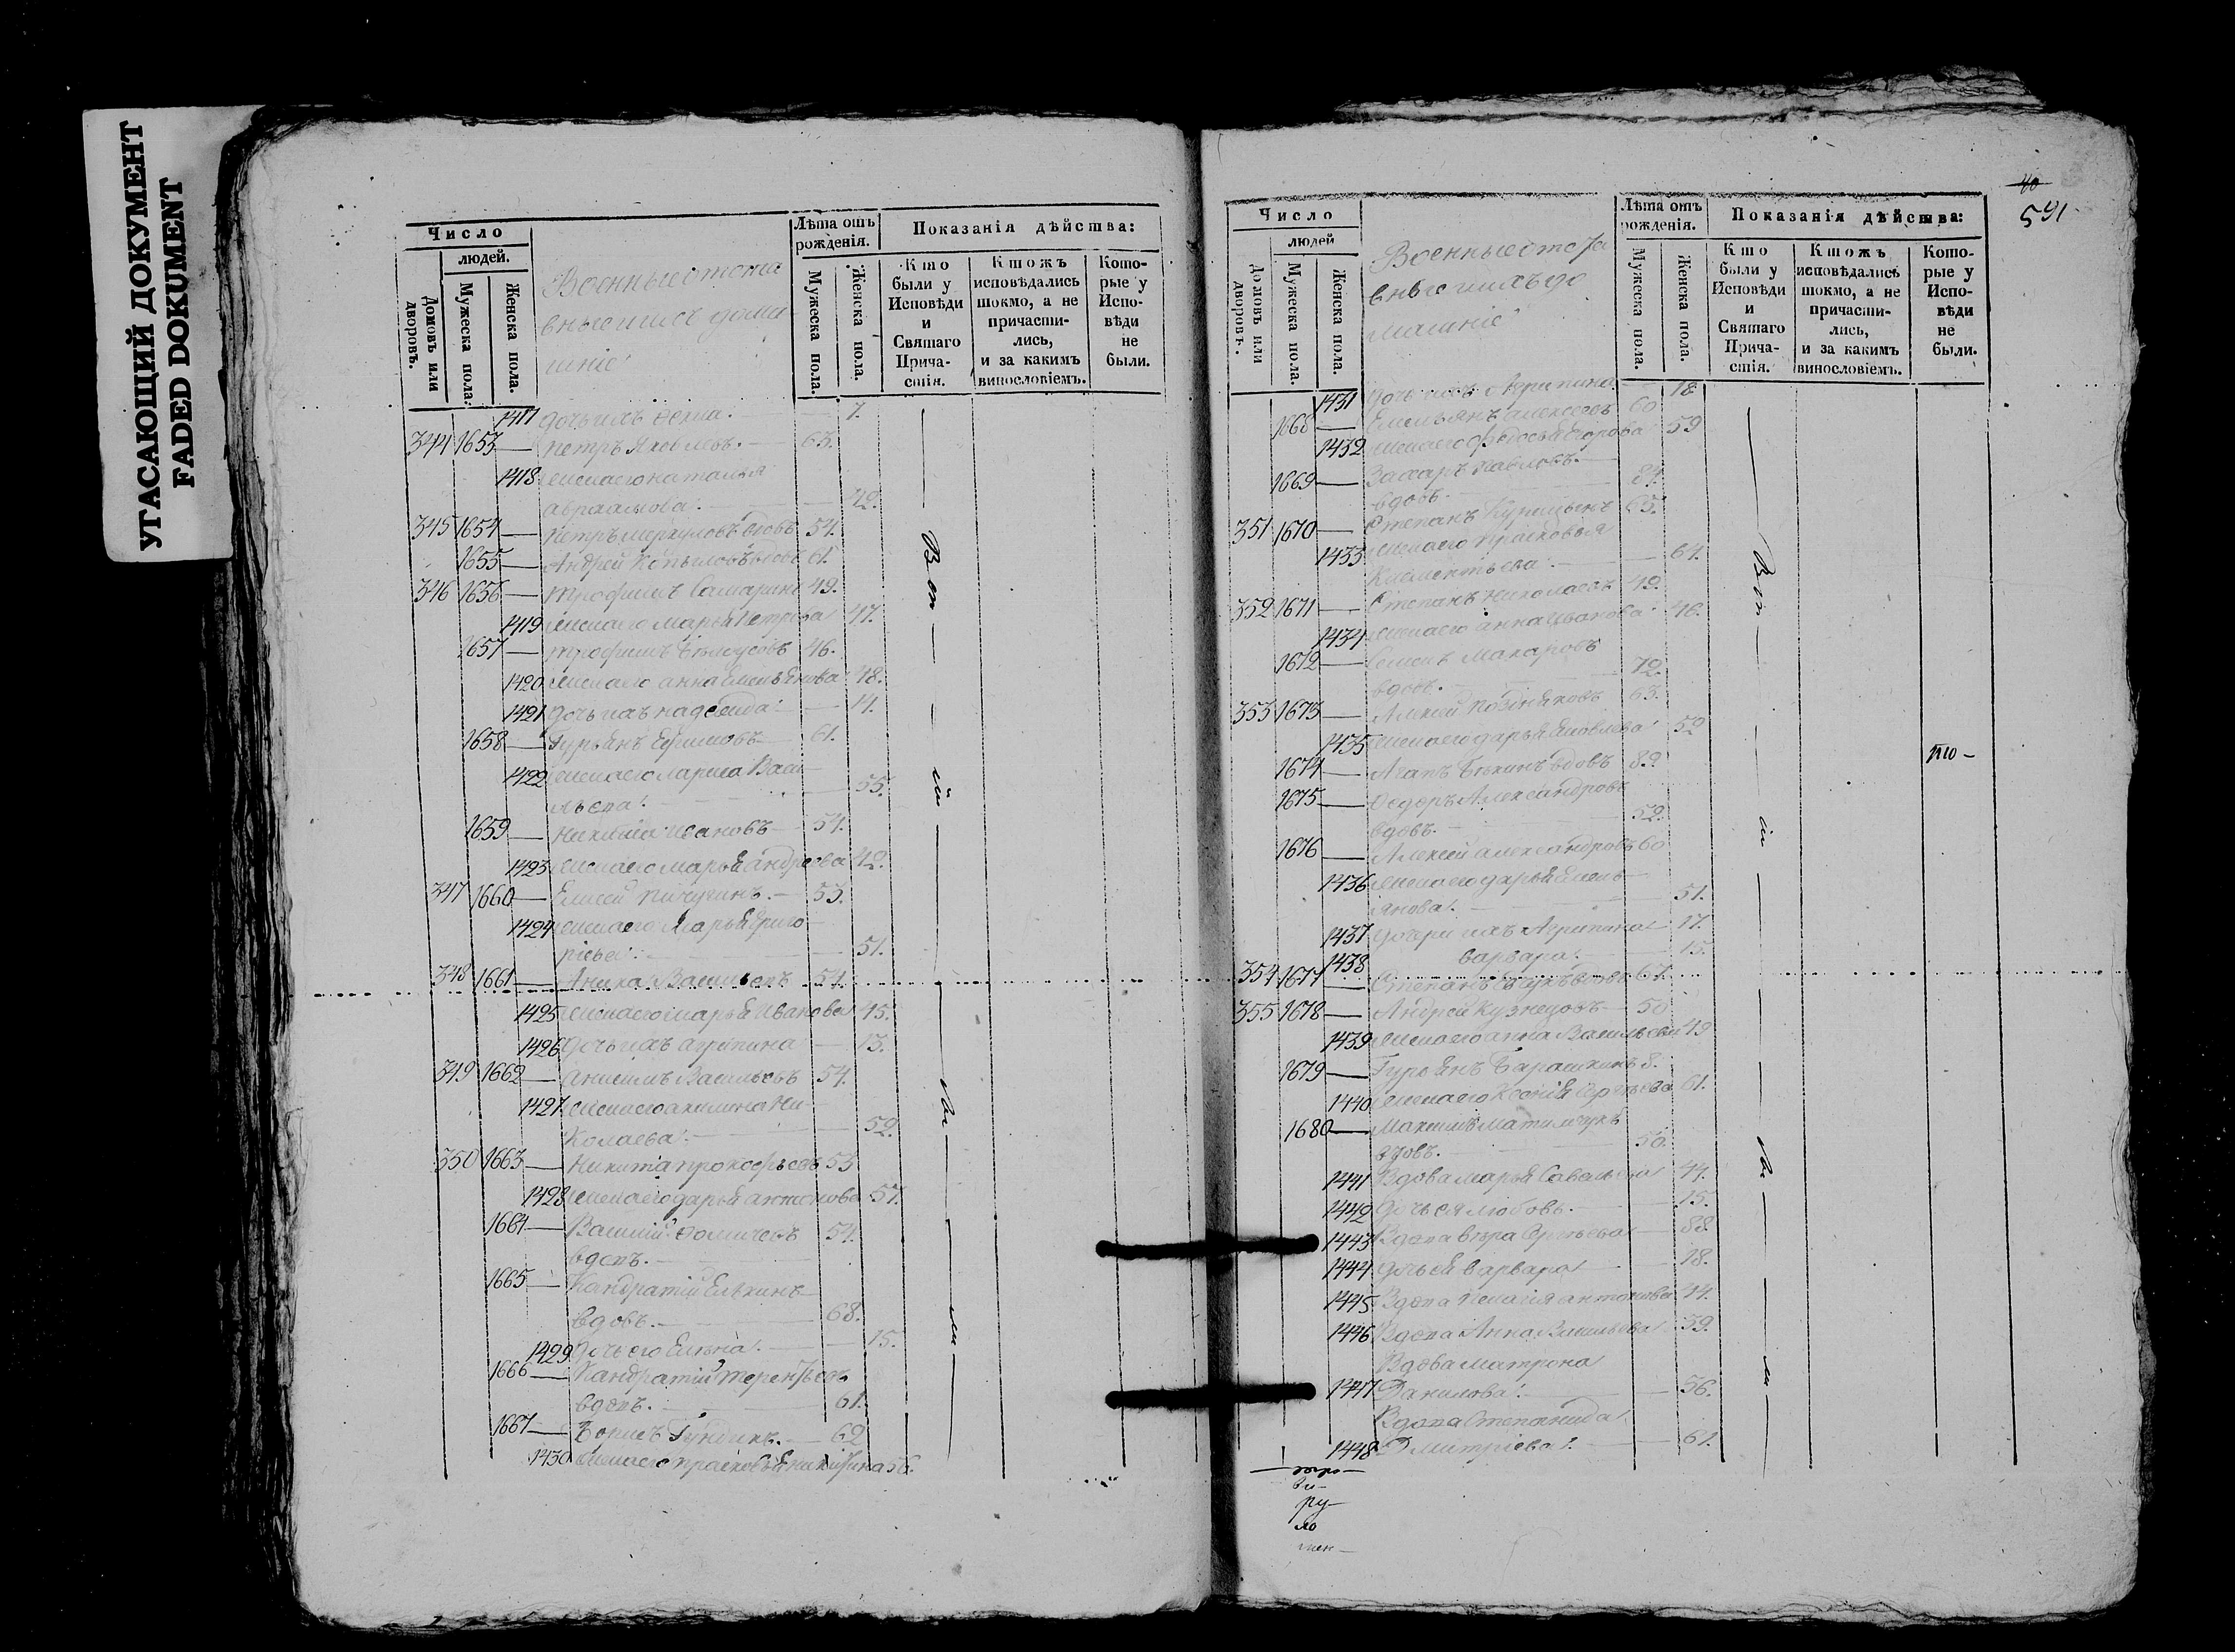 УГАСАЮЩИЙ ДОКУМЕНТ
FADED DOKUMENT
Число
людей.
Домовъ или дворовъ.
Мужеска пола.
Женска пола.
Военные отста
вные и ихъ дома
шніе
Лѣта отъ рожденія.
Мужеска пола.
Женска пола.
Показанія дѣйства:
Кто были у Исповѣди и Святаго Причастія.
Ктожъ исповѣдались токмо, а не причастились, и за какимъ винословіемъ.
Которые у Исповѣди не были.
1417 дочь ихъ 7.
344 1653 Петръ Яковлевъ. 63.
1418 жена его Наталья
Авраамова. 42.
345 1654 Петръ Меркуловъ вдовъ 54.
1655 Андрей Копыловъ вдовъ 61.
346 1656 Трофимъ Самаринъ 49.
1419 жена его Марья Петрова 47.
1657 Трофимъ Бѣлоусовъ 46.
1420 жена его Анна Емельянова 48.
1421 дочь ихъ Надежда 14.
1658 Гурьянъ Ефимовъ 61.
1422 жена его Марина Васи-
льева. 55.
1659 Никита Ивановъ 54.
1423 жена его Марья Андреева 42.
347 1660 Елисей Пичугинъ. 53.
1424 жена его Марья Григо-
рьева. 51.
348 1661 Аника Васильевъ 54.
1425 жена его Марья Иванова 45.
1426 дочь ихъ Агрипина 13.
349 1662 Анисимъ Васильевъ 54.
1427 жена его Акилина Ни-
колаева. 52.
350 1663 Никита Прокофьевъ 53
1428 жена его Дарья Антонова 57.
1664 Василий Фомичевъ 54.
вдовъ.
1665 Кандратий Елькинъ
вдовъ. 68.
1429 Дочь его Елена. 15.
1666 Кандратий Терентьевъ
вдовъ. 61.
1667 Борисъ Гундинъ. 62
1430 жена его Прасковья Никитина 56.
Вот
ім
40
591
Число
людей
Домовъ или дворовъ.
Мужеска пола.
Женска пола.
Военные отста
вные и ихъ до
машніе
Лѣта отъ рожденія.
Мужеска пола.
Женска пола.
Показанія дѣйства:
Кто были у Исповѣди и Святаго Причастія.
Ктожъ исповѣдались токмо, а не причастились, и за какимъ винословіемъ.
Которые у Исповѣди не были.
1431 дочь ихъ Агрипина 18.
1668 Емельянъ Алексеевъ 60
1432 жена его Федосья Егорова 59
1669 Захаръ Павловъ.
вдовъ. 84.
351 1670 Степанъ Курицынъ 65.
1433 жена его Прасковья
Климентьева. 64.
352 1671 Степанъ Николаевъ 42.
1434 жена его Анна Иванова 46.
1672 Семенъ Макаровъ
вдовъ. 72.
353 1673 Алексей Поздняковъ 63.
1435 жена его Дарья Яковлева 52
1674 Агапъ вдовъ 82.
1675 Федоръ Александровъ
вдовъ. 52.
1676 Алексей Александровъ 60
1436 жена его Дарья Емель-
янова. 51.
1437 дочери ихъ Агрипина 17.
1438 Варвара. 15.
354 1677 Степанъ вдовъ 67.
355 1678 Андрей Кузнецовъ 50
1439 жена его Анна Васильева 49
1679 Гурьянъ Барашкинъ
1440 жена его Ксения Сергѣева 61.
1680 Максимъ
вдовъ. 50.
1441 Вдова Марья Савельева 44.
1442 Дочь ея Любовь. 15.
1443 Вдова Вѣра Сергѣева 38.
1444 дочь ея Варвара 18.
1445 Вдова Пелагия Антонова 44.
1446 Вдова Анна Васильева 39.
Вдова Матрона
1447 Данилова. 56.
Вдова Степанида
1448 Дмитріева. 61.
Вот